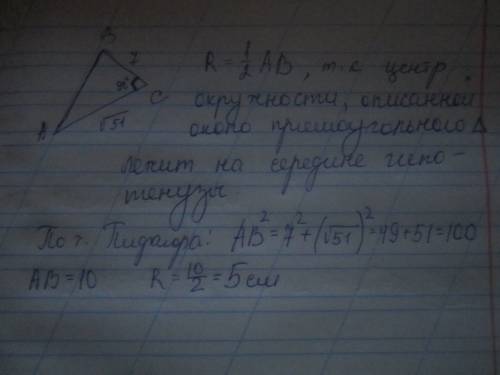 B
7
90°
C
A
√51
R = 1/2 AB, т.к центр
окружности, описанной
около прямоугольного Δ
лежит на середине гипо-
тенузы
По т. Пифагора: AB² = 7² + (√51)² = 49 + 51 = 100
AB = 10 R = 10/2 = 5 см